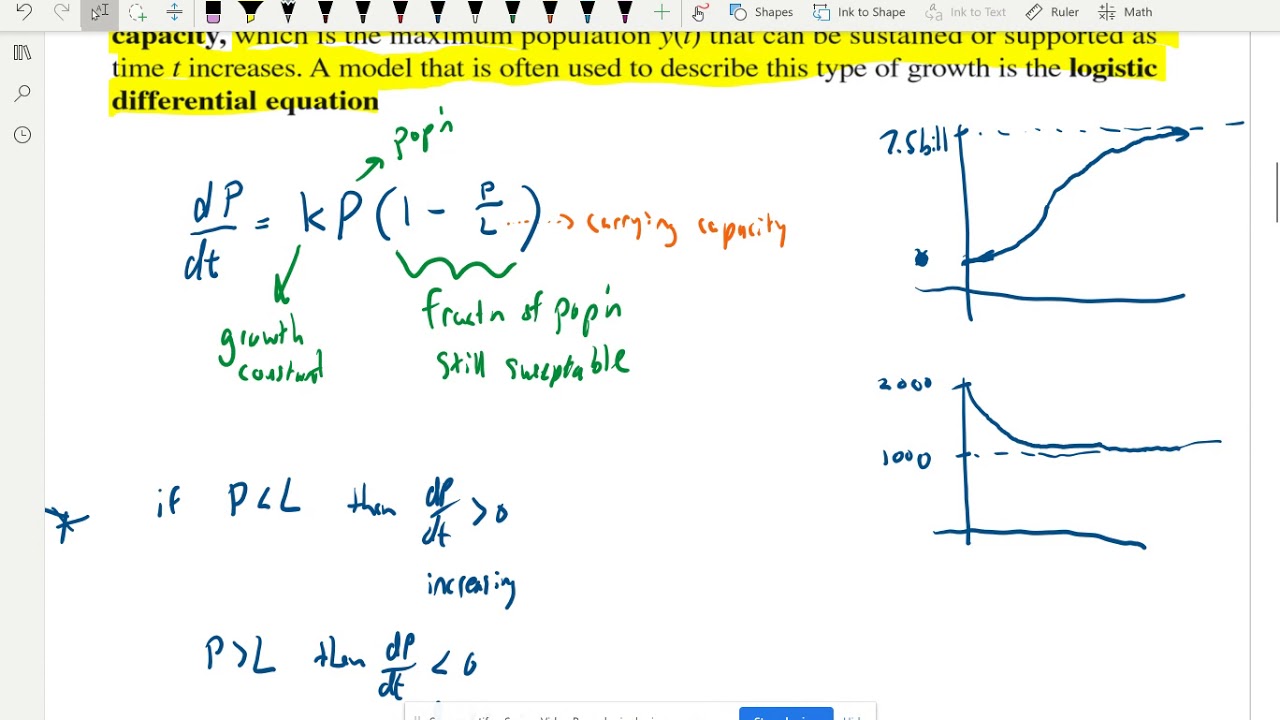 Shapes
Ink to Shape
Ink to Text
Ruler
Math
capacity, which is the maximum population y(t) that can be sustained or supported as
time t increases. A model that is often used to describe this type of growth is the logistic
differential equation
pop'n
dP/dt = kP(1 - P/L) → carrying capacity
growth
constant
fractn of pop'n
still sweptable
if P<L then dP/dt >0
increasing
P>L then dP/dt <0
7.5bill
2000
1000